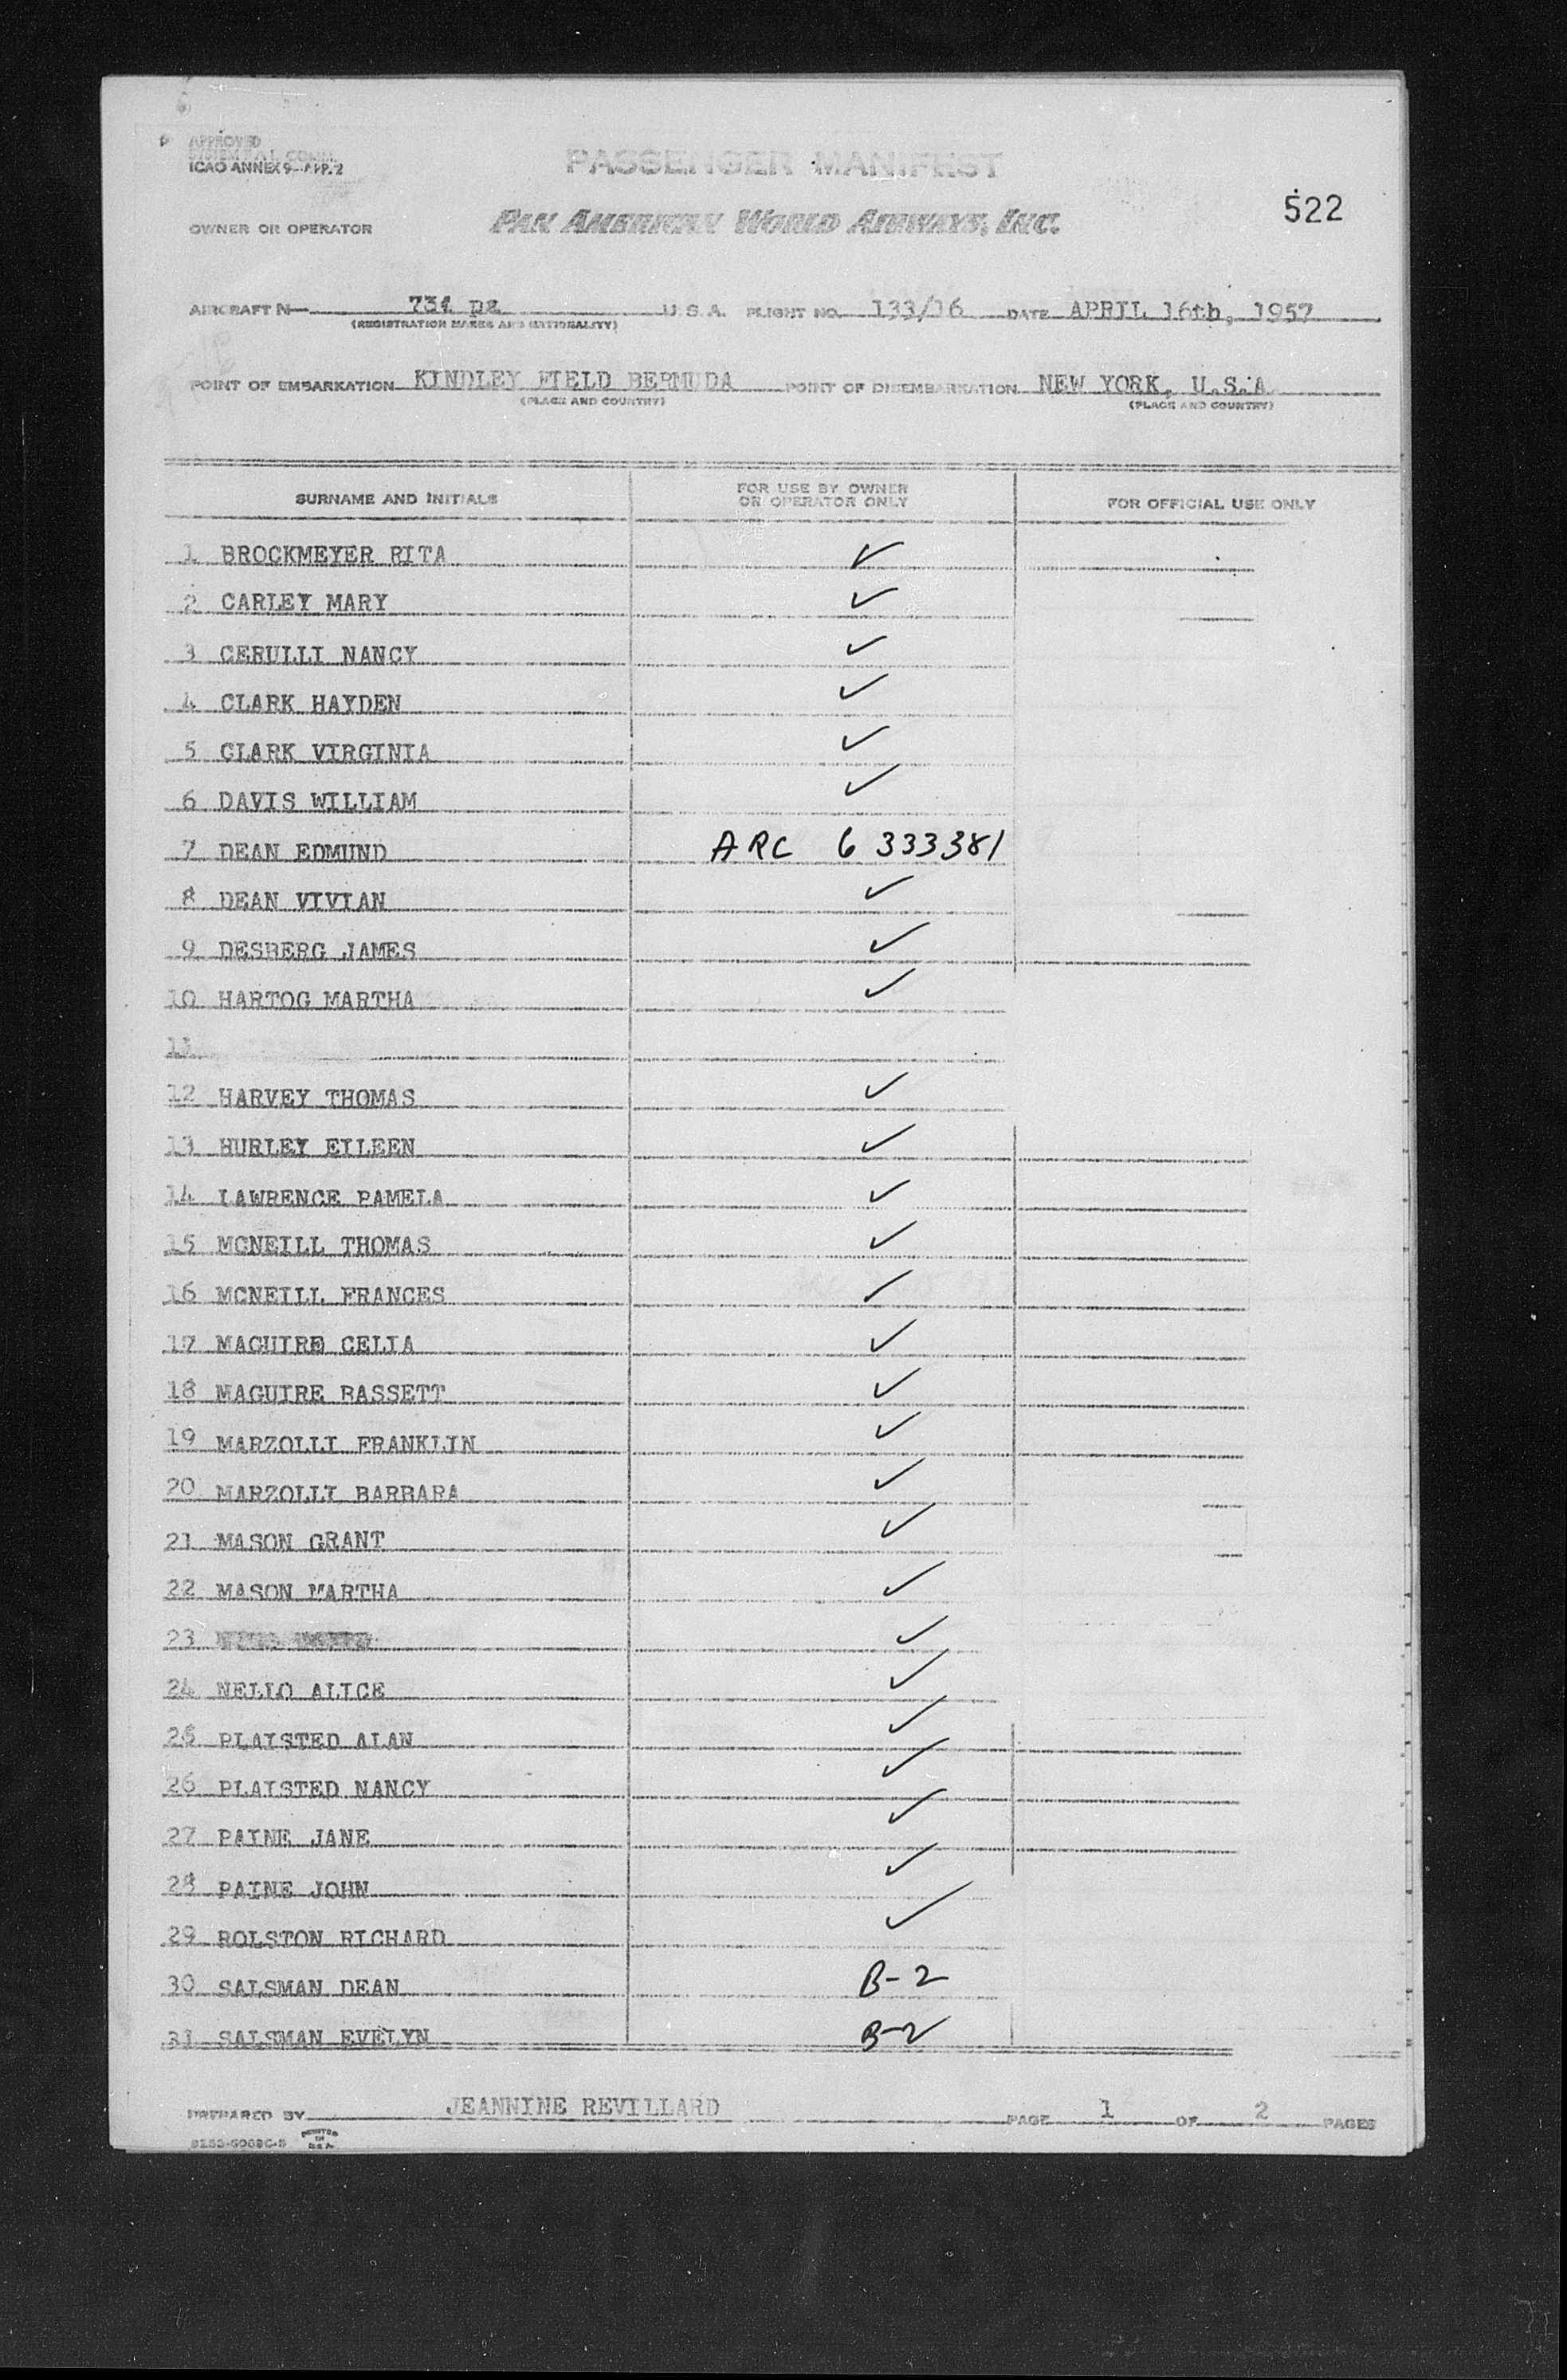 APPROVED
ICAO ANNEX 9-APP. 2
PASSENGER MANIFEST
522
OWNER OR OPERATOR PAN AMERICAN WORLD AIRWAYS, INC.
AIRCRAFT N 734 U.S.A. FLIGHT NO. 133/16 DATE APRIL 16th, 1957
(REGISTRATION MARKS AND NATIONALITY)
POINT OF EMBARKATION KINDLEY FIELD BERMUDA POINT OF DISEMBARKATION NEW YORK, U.S.A.
(PLACE AND COUNTRY) (PLACE AND COUNTRY)
SURNAME AND INITIALS FOR USE BY OWNER OR OPERATOR ONLY FOR OFFICIAL USE ONLY
1 BROCKMEYER RITA ✓
2 CARLEY MARY ✓
3 CERULLI NANCY ✓
4 CLARK HAYDEN ✓
5 CLARK VIRGINIA ✓
6 DAVIS WILLIAM ✓
7 DEAN EDMUND ARC 6 333381
8 DEAN VIVIAN ✓
9 DESBERG JAMES ✓
10 HARTOG MARTHA ✓
11
12 HARVEY THOMAS ✓
13 HURLEY EILEEN ✓
14 LAWRENCE PAMELA ✓
15 MCNEILL THOMAS ✓
16 MCNEILL FRANCES ✓
17 MAGUIRE CELIA ✓
18 MAGUIRE BASSETT ✓
19 MARZOLLI FRANKLIN ✓
20 MARZOLLI BARBARA ✓
21 MASON GRANT ✓
22 MASON MARTHA ✓
23 ✓
24 NELLO ALICE ✓
25 PLAISTED ALAN ✓
26 PLAISTED NANCY ✓
27 PAINE JANE ✓
28 PAINE JOHN ✓
29 ROLSTON RICHARD ✓
30 SALSMAN DEAN B-2
31 SALSMAN EVELYN B-2
PREPARED BY JEANNINE REVILLARD PAGE 1 OF 2 PAGES
PRINTED IN U.S.A.